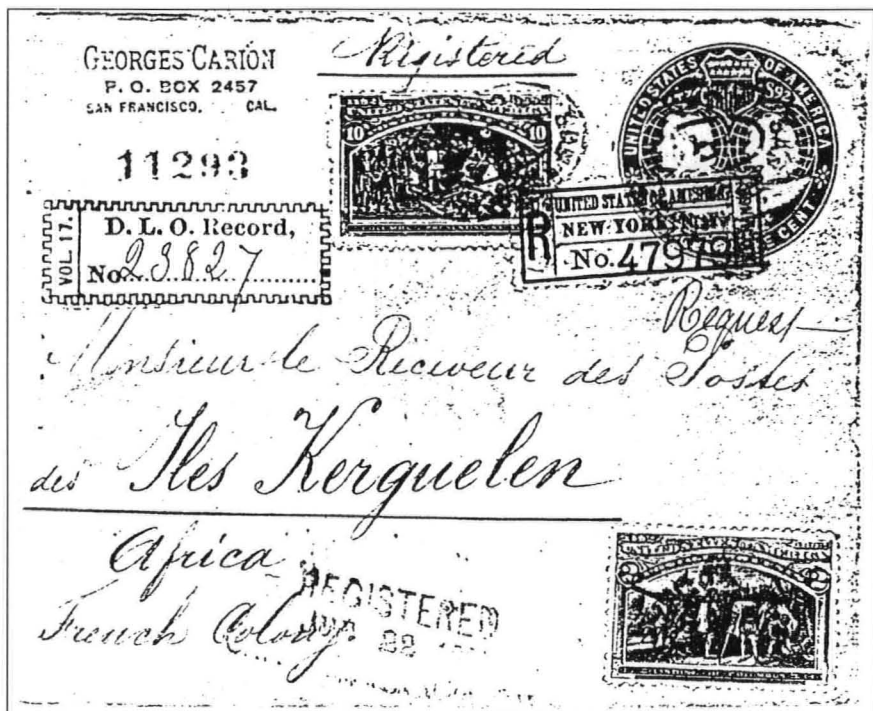 GEORGES CARION
P. O. BOX 2457
SAN FRANCISCO, CAL.
Registered
11293
VOL. 17.
D. L. O. Record,
No. 23827
10 10
UNITED STATES OF AMERICA
UNITED STATES OF AMERICA
NEW-YORK
R
No. 47979
Request
Monsieur le Receveur des Postes
des Iles Kerguelen
Africa
French Colony
REGISTERED
22
2 2